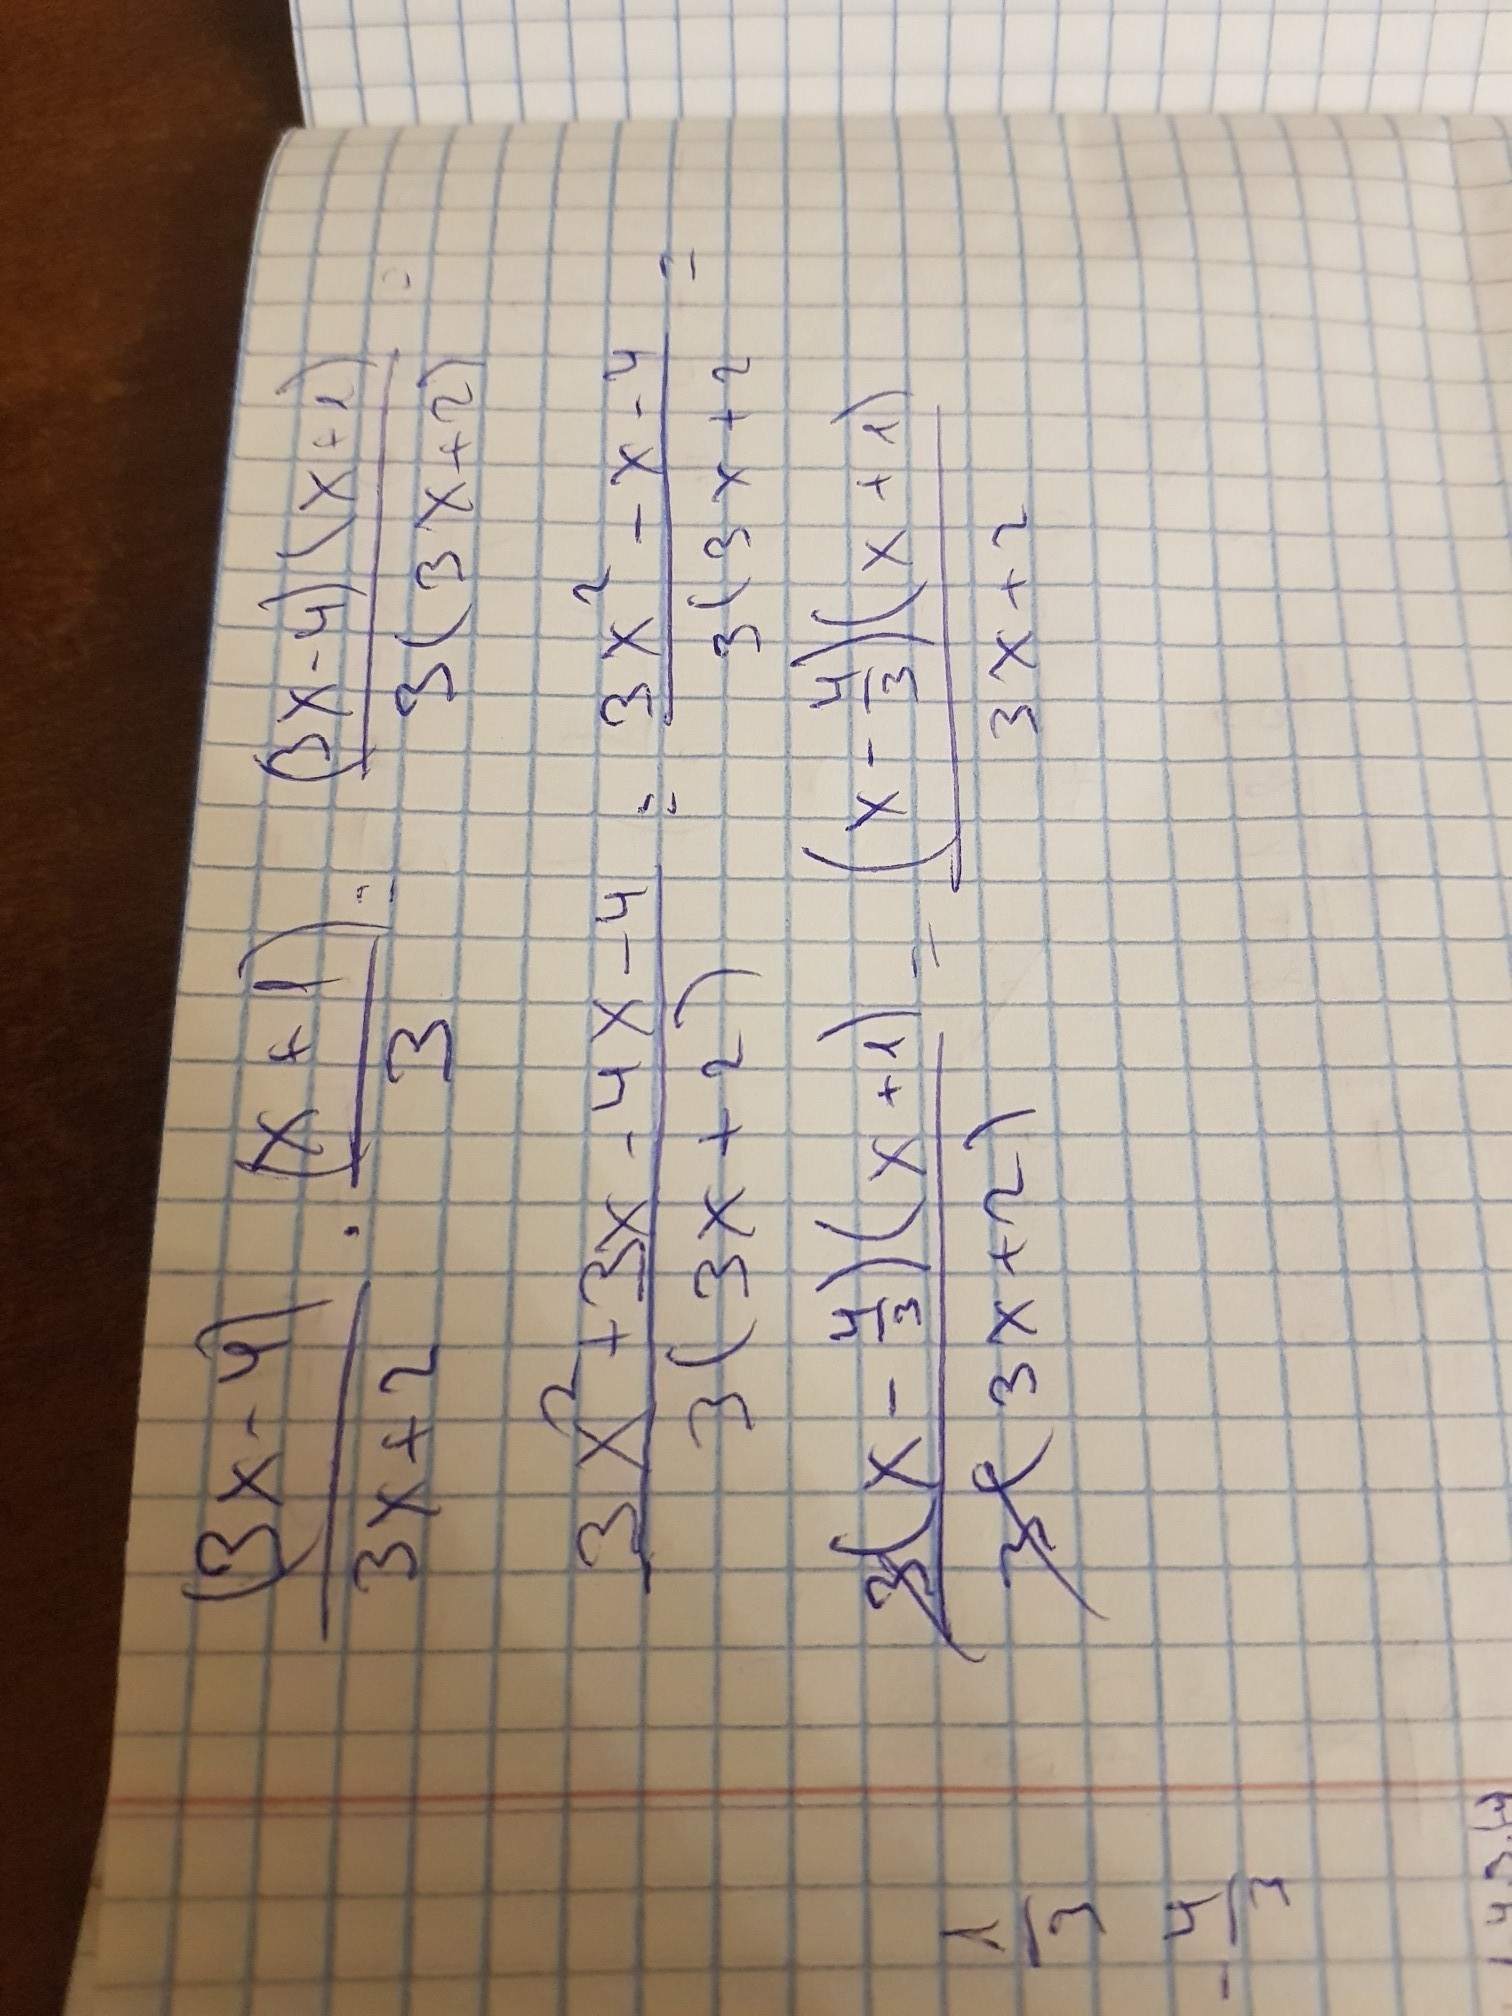 (3x-4)/(3x+2) · (x+1)/3 = (3x-4)(x+1)/3(3x+2) =
(3x²+3x-4x-4)/3(3x+2) = (3x²-x-4)/3(3x+2 =
3(x-4/3)(x+1)/3(3x+2) = (x-4/3)(x+1)/(3x+2)
1/3
-4/3